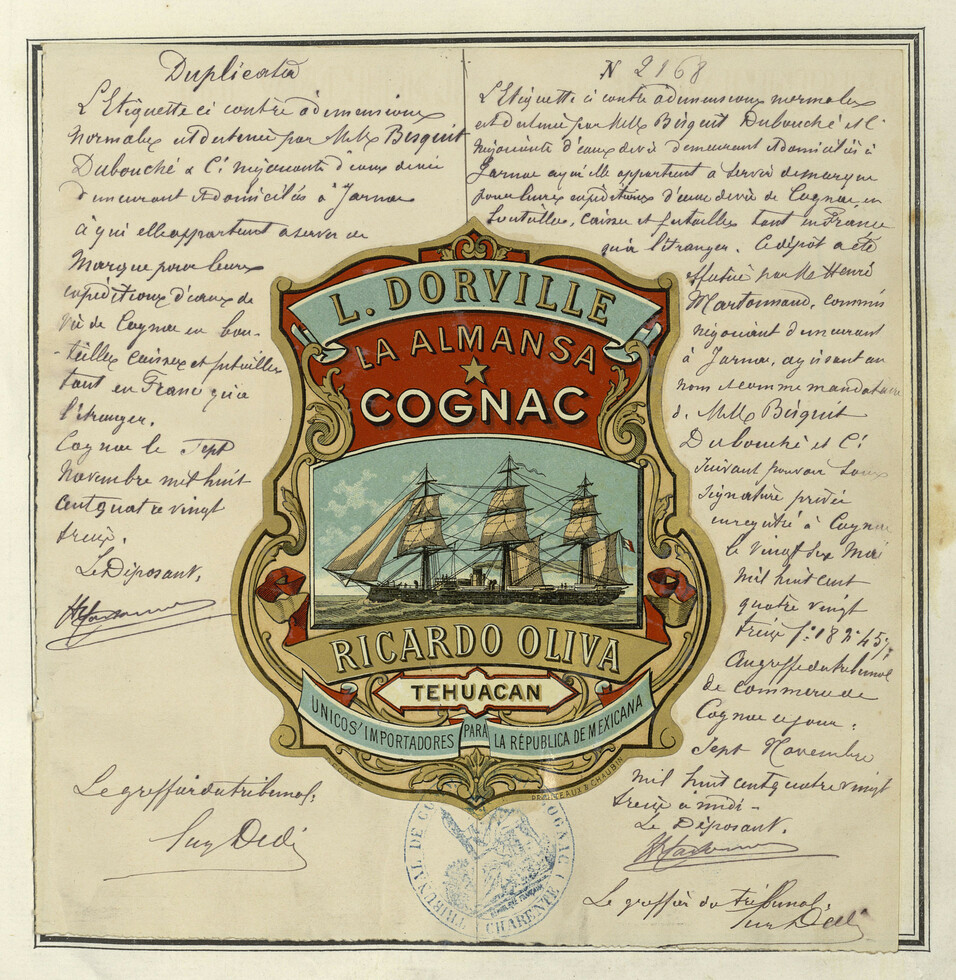 Duplicata
L'Etiquette ci contre à dimensions
normales est destinée par MM Bisquit
Dubouché & Cie négociants d'eaux de vie
demeurant et domiciliés à Jarnac
à qui elle appartient à servir de
Marque pour leurs
expéditions d'eaux de
vie de Cognac en bou-
-teilles caisses et futailles
tant en France qu'à
l'étranger.
Cognac le Sept
Novembre mil huit
cent quatre vingt
treize.
Le Déposant,
Le greffier du tribunal,
N 2168
L'Etiquette ci contre à dimensions normales
est destinée par MM Bisquit Dubouché et Cie
négociants d'eaux de vie demeurant et domiciliés à
Jarnac à qui elle appartient à servir de marque
pour leurs expéditions d'eaux de vie de Cognac en
bouteilles, caisses et futailles tant en France
qu'à l'étranger. Ce dépôt a été
effectué par Mr Henri
commis
négociant demeurant
à Jarnac, agissant au
nom et comme mandataire
de MM Bisquit
Dubouché et Cie
suivant pouvoir sous
signature privée
enregistré à Cognac
le vingt six Mai
mil huit cent
quatre vingt
treize fo 18 
Au greffe du tribunal
de commerce de
Cognac ce jour.
Sept Novembre
mil huit cent quatre vingt
treize à midi -
Le Déposant,
Le greffier du tribunal,
L. DORVILLE
LA ALMANSA
COGNAC
RICARDO OLIVA
TEHUACAN
UNICOS IMPORTADORES PARA LA RÉPUBLICA DE MEXICANA
CHAUBIN
TRIBUNAL DE CO OGNAC
CHARENTE